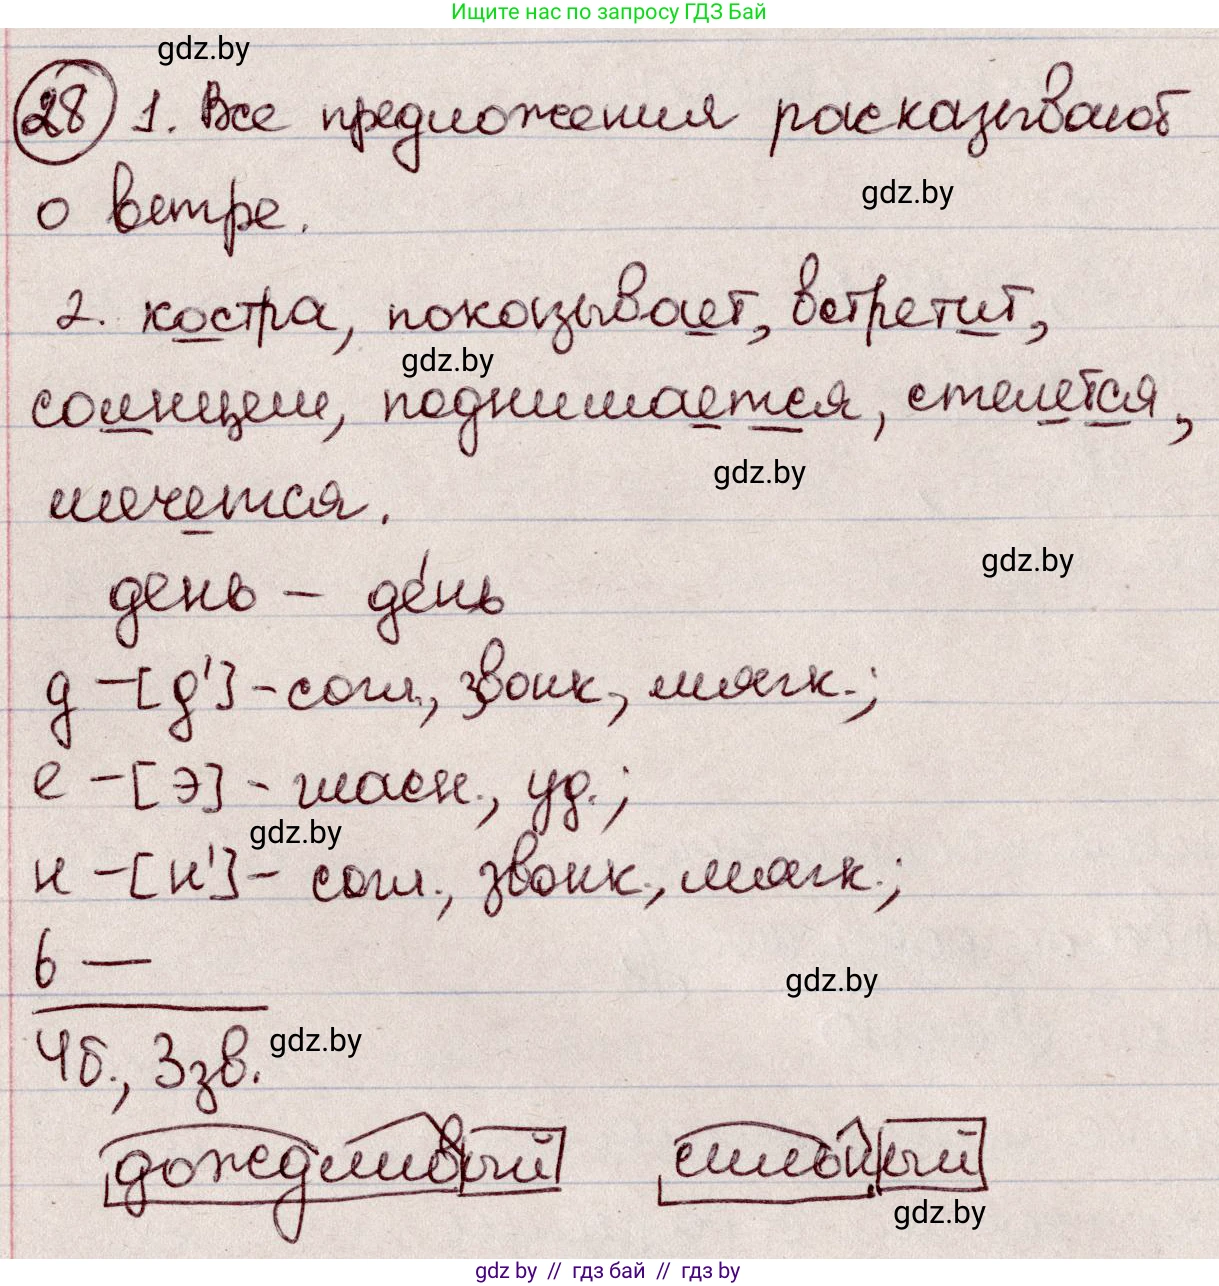 Ищите нас по запросу ГДЗ Бай
gdz.by
28 1. Все предложения расказывают
gdz.by
о ветре.
2. костра, показывает, встретит,
gdz.by
солнцем, поднимается, стелется,
gdz.by
мечется.
gdz.by
день – де́нь
д – [д'] – согл., звонк., мягк.;
е – [э] – гласн., уд.;
gdz.by
н – [н'] – согл., звонк., мягк.;
ь —
gdz.by
4б., 3зв.
gdz.by
дождливый сильный
gdz.by
gdz by // гдз бай // gdz by